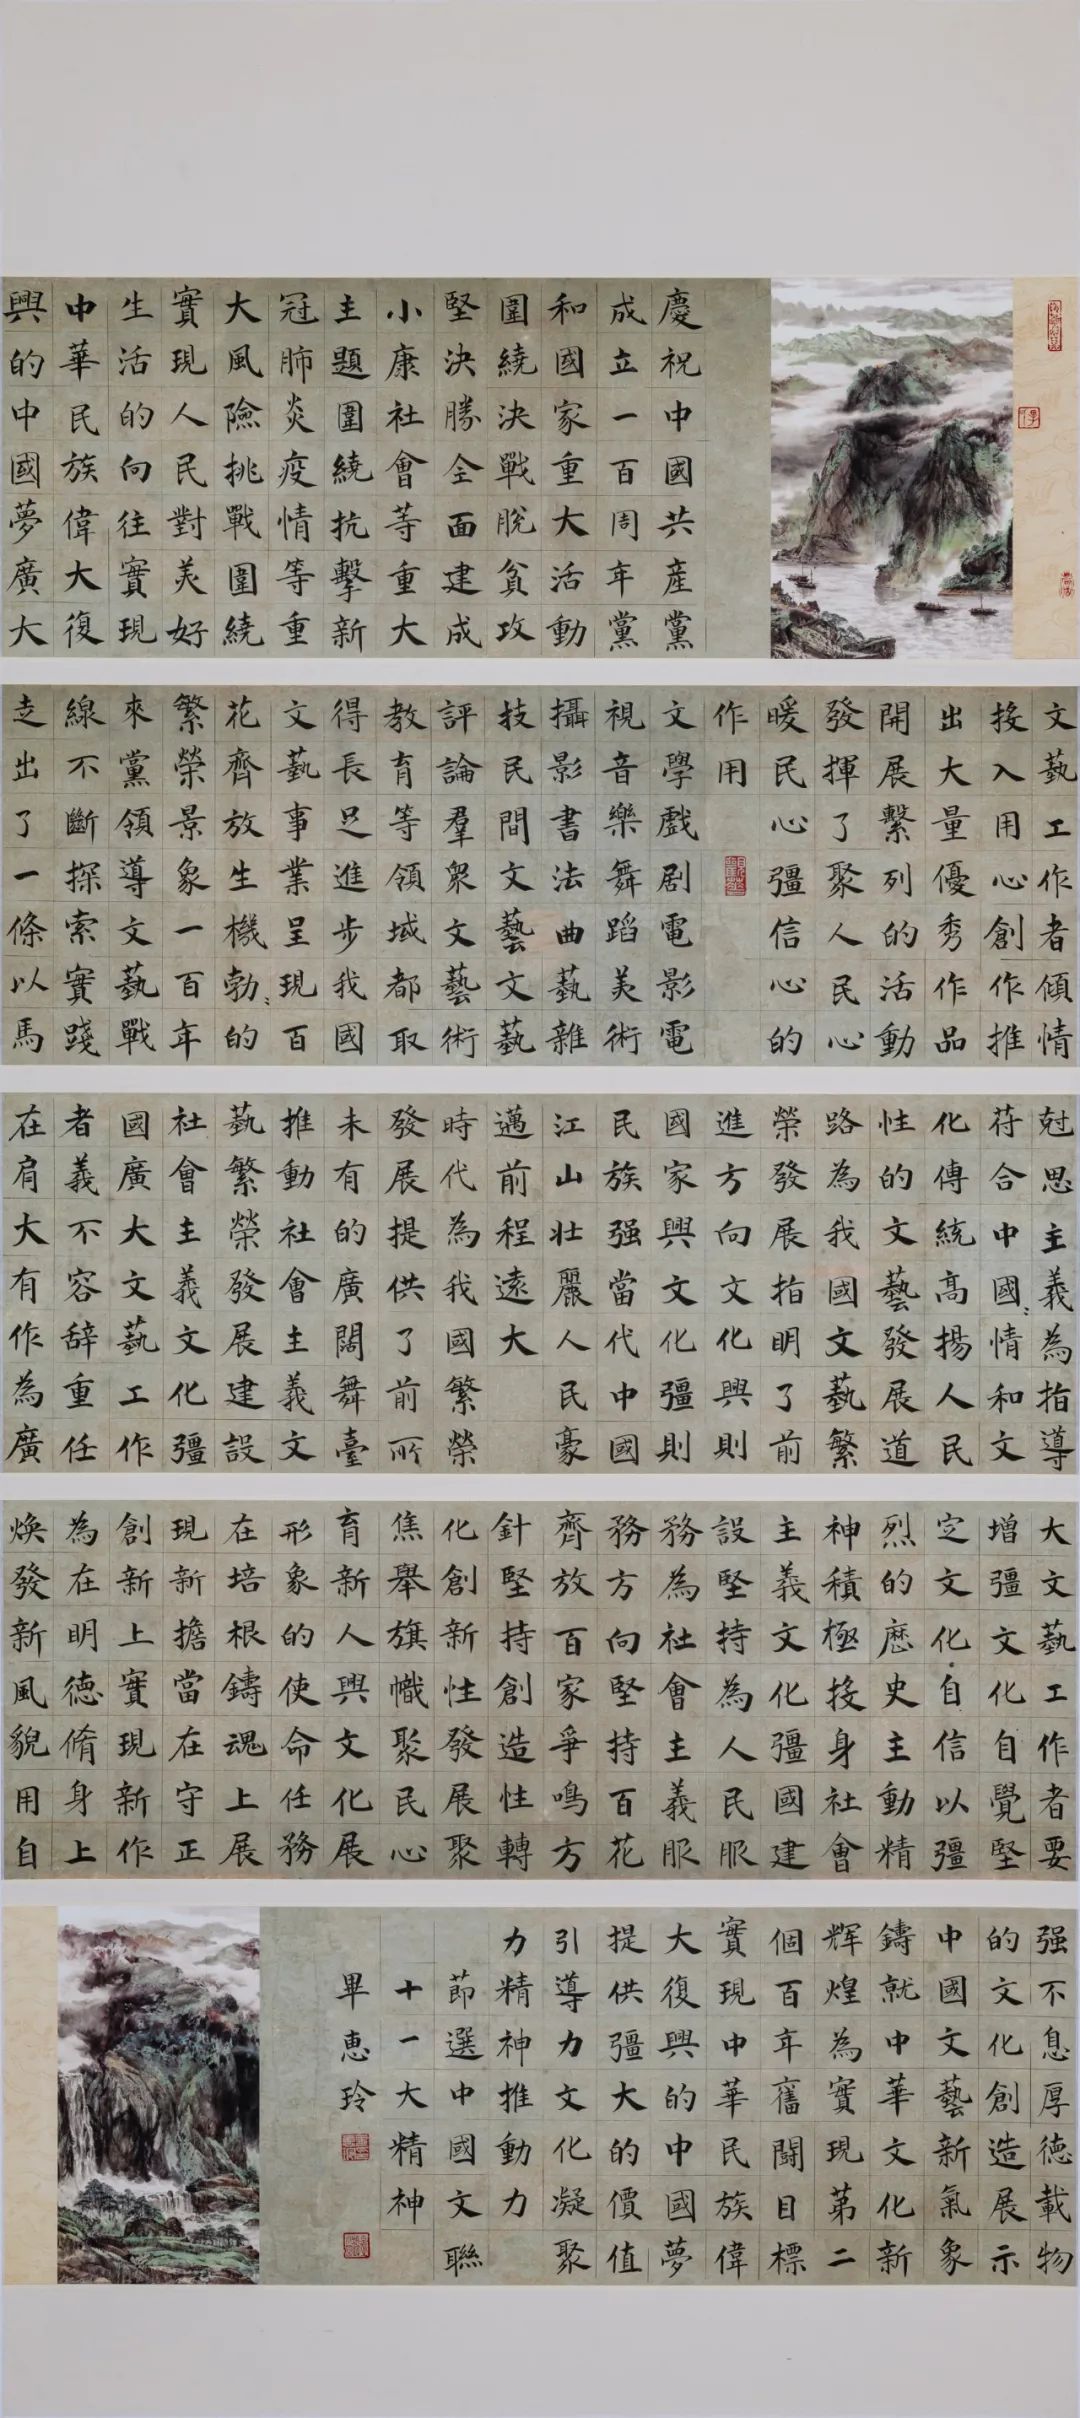 慶祝中國共産黨
成立一百周年黨
和國家重大活動
圍繞決戰脫貧攻
堅決勝全面建成
小康社會等重大
主題圍繞抗擊新
冠肺炎疫情等重
大風險挑戰圍繞
實現人民對美好
生活的向往實現
中華民族偉大復
興的中國夢廣大
文藝工作者傾情
投入用心創作推
出大量優秀作品
開展繫列的活動
發揮了聚人民心
暖民心彊信心的
作用
文學戲剧電影電
視音樂舞蹈美術
攝影書法曲藝雜
技民間文藝文藝
評論羣衆文藝術
教育等領域都取
得長足進步我國
文藝事業呈現百
花齊放生機勃〻的
繁榮景象一百年
來黨領導文藝戰
線不斷探索實踐
走出了一條以馬
尅思主義為指導
符合中國〻情和文
化傳統高揚人民
性的文藝發展道
路為我國文藝繁
榮發展指明了前
進方向文化興則
國家興文化彊則
民族强當代中國
江山壯麗人民豪
邁前程遠大
時代為我國繁榮
發展提供了前所
未有的廣闊舞臺
推動社會主義文
藝繁榮發展建設
社會主義文化彊
國廣大文藝工作
者義不容辞重任
在肩大有作為廣
大文藝工作者要
增彊文化自覺堅
定文化自信以彊
烈的歷史主動精
神積極投身社會
主義文化彊國建
設堅持為人民服
務為社會主義服
務方向堅持百花
齊放百家爭鳴方
針堅持創造性轉
化創新性發展聚
焦舉旗幟聚民心
育新人興文化展
形象的使命任務
在培根鑄魂上展
現新擔當在守正
創新上實現新作
為在明德脩身上
煥發新風貌用自
强不息厚德載物
的文化創造展示
中國文藝新氣象
鑄就中華文化新
辉煌為實現第二
個百年奮鬪目標
實現中華民族偉
大復興的中國夢
提供彊大的價值
引導力文化凝聚
力精神推動力
節選中國文聯
十一大精神
畢惠玲